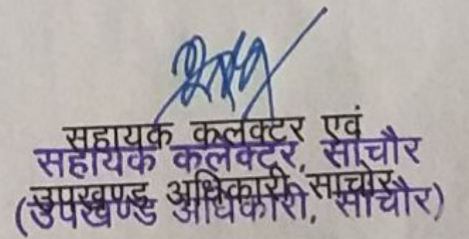 सहायक कलक्टर एवं
सहायक कलेक्टर, सांचौर
उपखण्ड अधिकारी, सांचोर
(उपखण्ड अधिकारी, सांचौर)